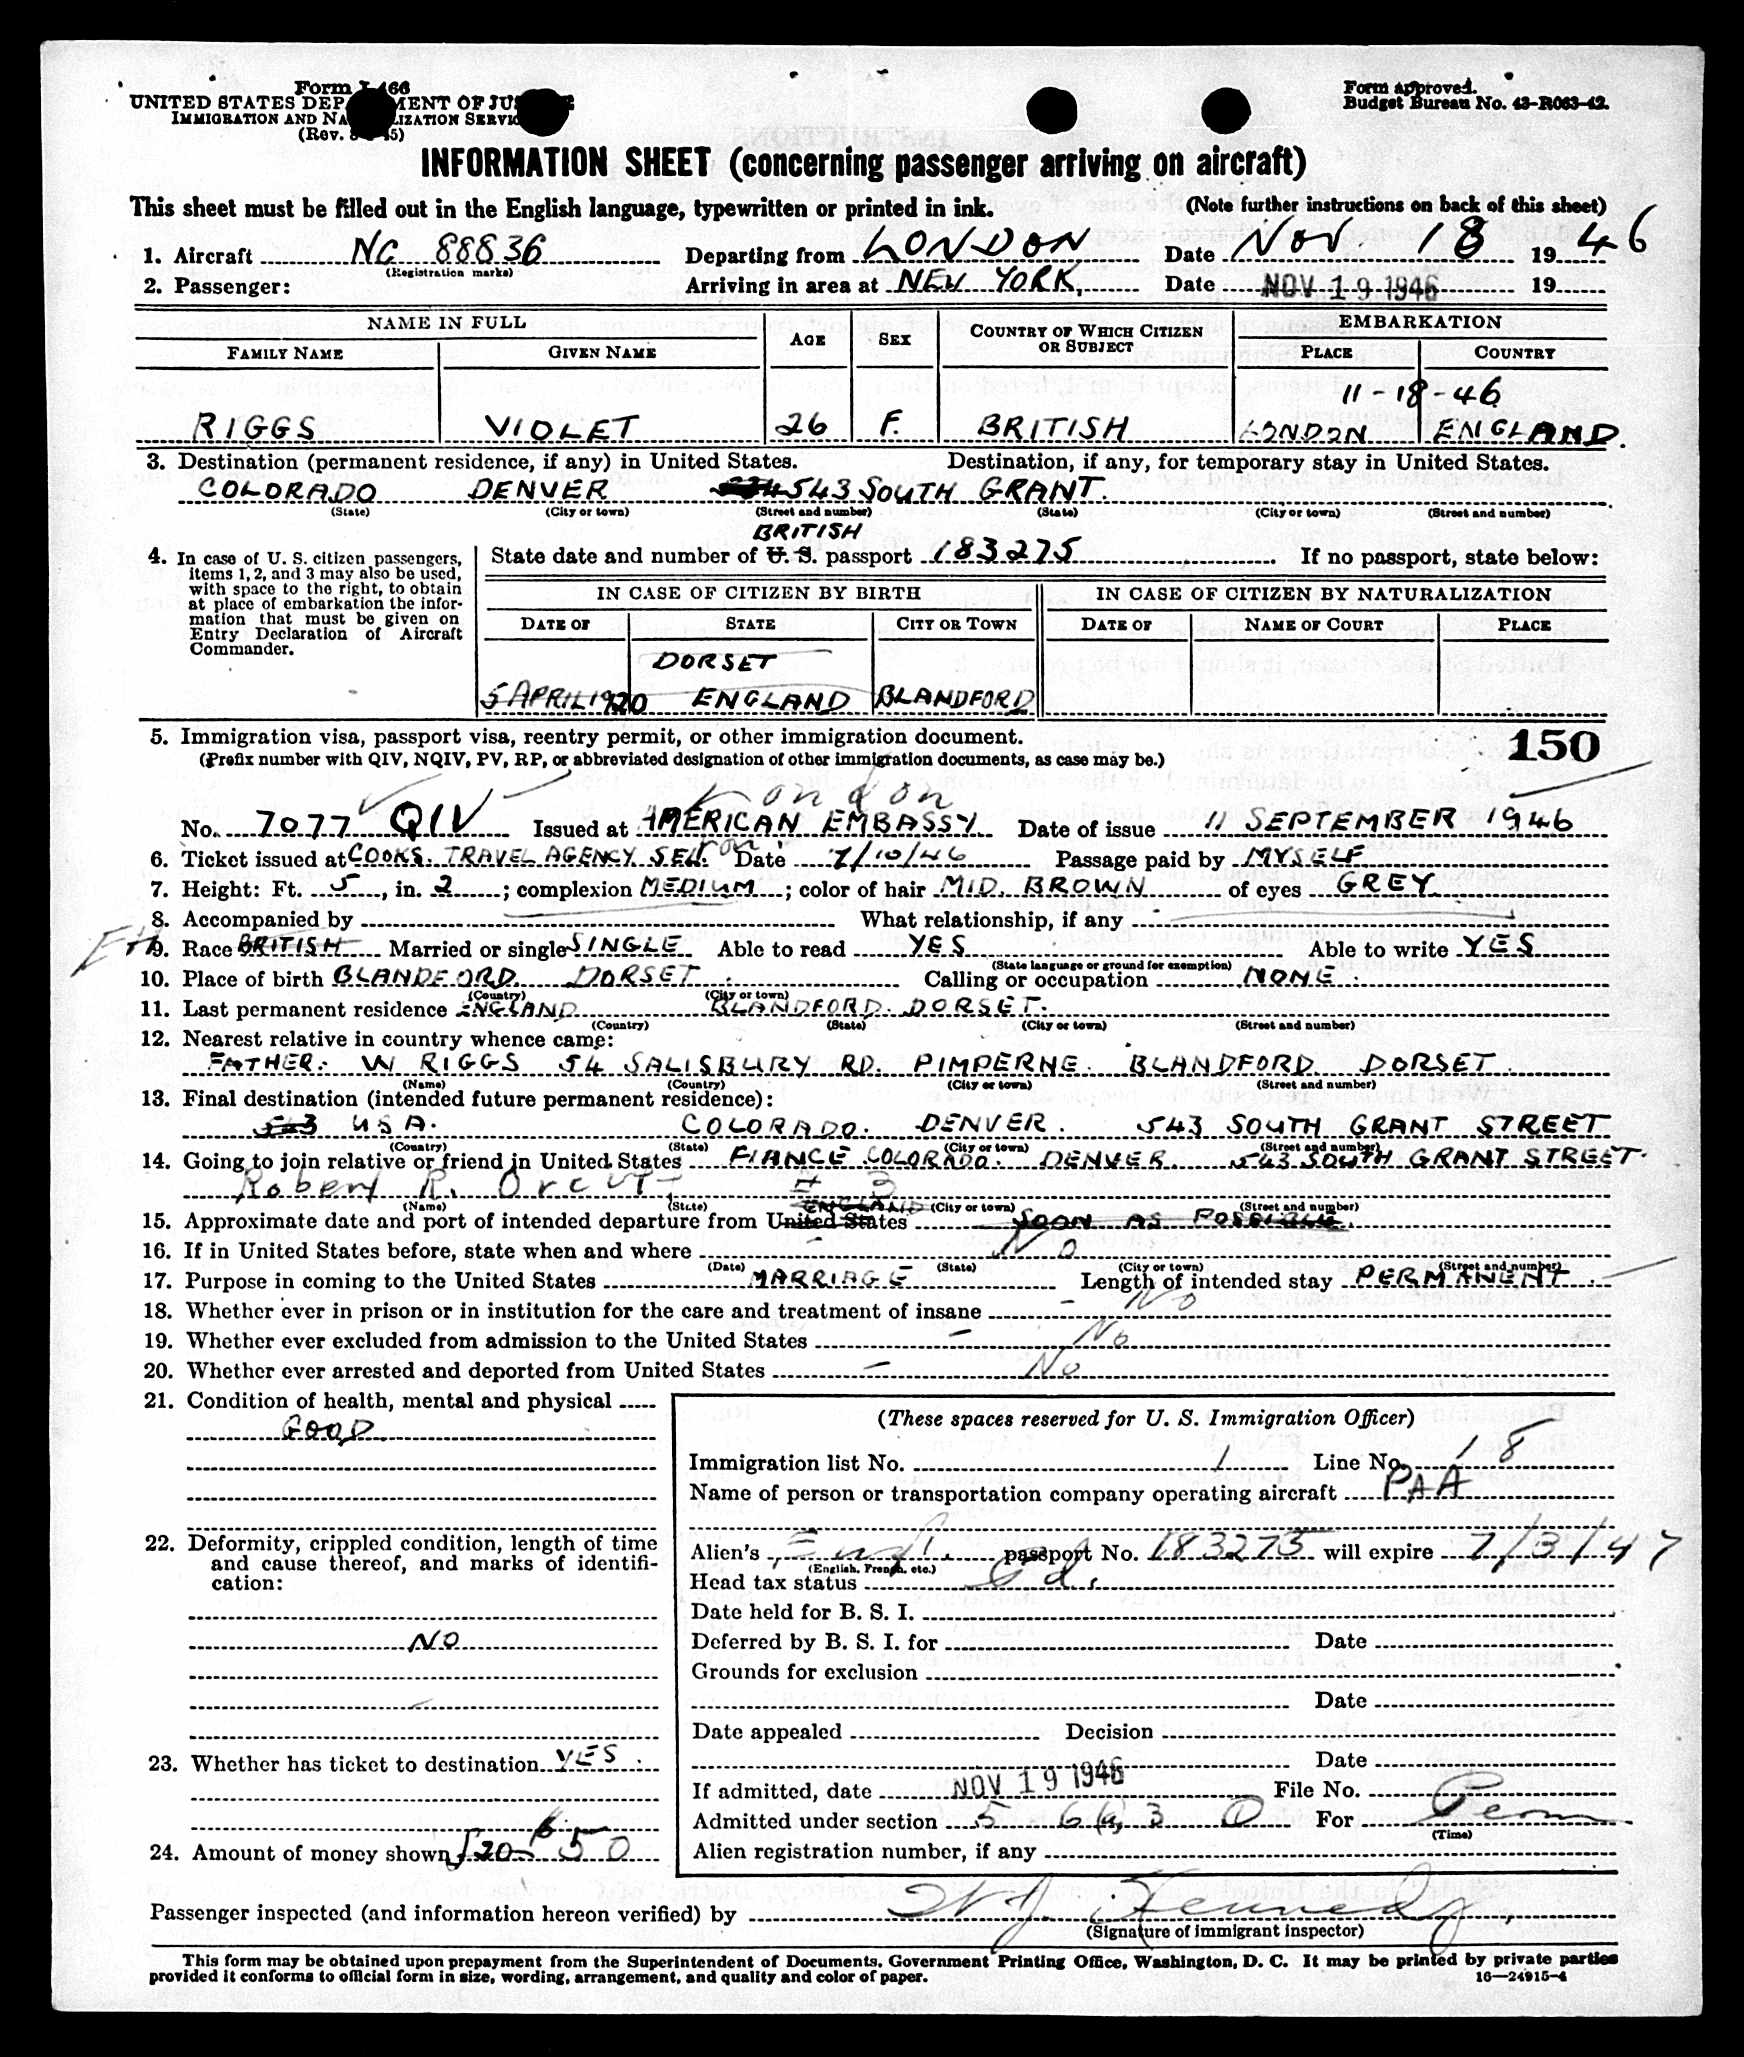 Form I-466
UNITED STATES DEPARTMENT OF JUSTICE
IMMIGRATION AND NATURALIZATION SERVICE
(Rev. 45)
Form approved.
Budget Bureau No. 43-R063-42.
INFORMATION SHEET (concerning passenger arriving on aircraft)
This sheet must be filled out in the English language, typewritten or printed in ink. (Note further instructions on back of this sheet)
1. Aircraft NC 88836 Departing from LONDON Date NOV. 18 1946
(Registration marks)
2. Passenger: Arriving in area at NEW YORK, Date NOV 19 1946 19
NAME IN FULL AGE SEX COUNTRY OF WHICH CITIZEN OR SUBJECT EMBARKATION
FAMILY NAME GIVEN NAME PLACE COUNTRY
11-18-46
RIGGS VIOLET 26 F. BRITISH LONDON ENGLAND.
3. Destination (permanent residence, if any) in United States. Destination, if any, for temporary stay in United States.
COLORADO DENVER 543 SOUTH GRANT.
(State) (City or town) (Street and number) (State) (City or town) (Street and number)
BRITISH
4. In case of U. S. citizen passengers, items 1, 2, and 3 may also be used, with space to the right, to obtain at place of embarkation the information that must be given on Entry Declaration of Aircraft Commander.
State date and number of U. S. passport 183275 If no passport, state below:
IN CASE OF CITIZEN BY BIRTH IN CASE OF CITIZEN BY NATURALIZATION
DATE OF STATE CITY OR TOWN DATE OF NAME OF COURT PLACE
DORSET
5 APRIL 1920 ENGLAND BLANDFORD
5. Immigration visa, passport visa, reentry permit, or other immigration document. 150
(Prefix number with QIV, NQIV, PV, RP, or abbreviated designation of other immigration documents, as case may be.)
London
No. 7077 QIV Issued at AMERICAN EMBASSY Date of issue 11 SEPTEMBER 1946
6. Ticket issued at COOKS. TRAVEL AGENCY Date 7/10/46 Passage paid by MYSELF
7. Height: Ft. 5, in. 2; complexion MEDIUM; color of hair MID. BROWN of eyes GREY
8. Accompanied by What relationship, if any
9. Race BRITISH Married or single SINGLE Able to read YES Able to write YES
(State language or ground for exemption)
10. Place of birth BLANDFORD. DORSET Calling or occupation NONE
(Country) (City or town)
11. Last permanent residence ENGLAND BLANDFORD. DORSET.
(Country) (State) (City or town) (Street and number)
12. Nearest relative in country whence came:
FATHER. W RIGGS 54 SALISBURY RD. PIMPERNE. BLANDFORD DORSET.
(Name) (Country) (City or town) (Street and number)
13. Final destination (intended future permanent residence):
543 USA. COLORADO. DENVER. 543 SOUTH GRANT STREET
(Country) (State) (City or town) (Street and number)
14. Going to join relative or friend in United States FIANCE COLORADO. DENVER. 543 SOUTH GRANT STREET.
Robert R. Orcutt # 3
(Name) (State) (City or town) (Street and number)
ENGLAND
15. Approximate date and port of intended departure from United States SOON AS POSSIBLE.
16. If in United States before, state when and where No
(Date) (State) (City or town) (Street and number)
17. Purpose in coming to the United States MARRIAGE Length of intended stay PERMANENT
18. Whether ever in prison or in institution for the care and treatment of insane - No
19. Whether ever excluded from admission to the United States - No
20. Whether ever arrested and deported from United States - No
21. Condition of health, mental and physical
GOOD
22. Deformity, crippled condition, length of time and cause thereof, and marks of identification:
NO
23. Whether has ticket to destination YES.
24. Amount of money shown £20 $50
(These spaces reserved for U. S. Immigration Officer)
Immigration list No. 1 Line No. 18
Name of person or transportation company operating aircraft PAA
Alien's Engl. passport No. 183275 will expire 7/3/47
(English, French, etc.)
Head tax status Pd.
Date held for B. S. I.
Deferred by B. S. I. for Date
Grounds for exclusion
Date
Date appealed Decision
Date
If admitted, date NOV 19 1946 File No.
Admitted under section 5 6(a) 3 For Perm
(Time)
Alien registration number, if any
Passenger inspected (and information hereon verified) by W J. Kennedy
(Signature of immigrant inspector)
This form may be obtained upon prepayment from the Superintendent of Documents, Government Printing Office, Washington, D. C. It may be printed by private parties
provided it conforms to official form in size, wording, arrangement, and quality and color of paper. 16—24915-4